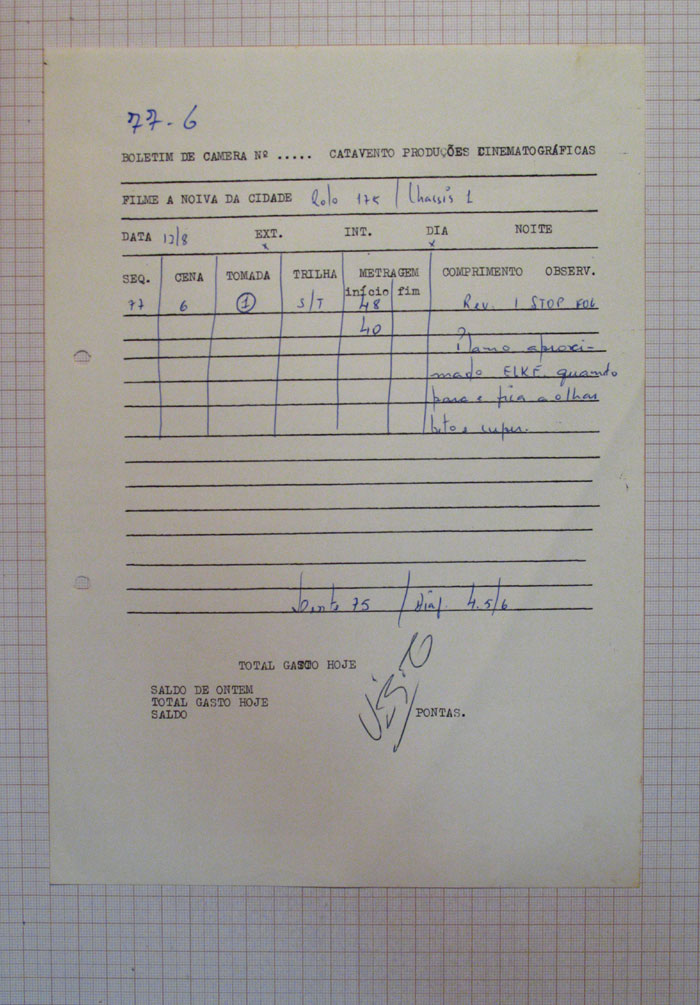 77-6
BOLETIM DE CAMERA Nº ..... CATAVENTO PRODUÇÕES CINEMATOGRÁFICAS
FILME A NOIVA DA CIDADE Rolo 17K / Chassis 1
DATA 12/8 EXT. INT. DIA NOITE
x x
SEQ. CENA TOMADA TRILHA METRAGEM COMPRIMENTO OBSERV.
início fim
77 6 1 S/T 48 Rev. 1 STOP
40
Plano aproxi-
mado ELKE quando
para e fica a olhar
75 / Diaf. 4.5/6
TOTAL GASTO HOJE
SALDO DE ONTEM
TOTAL GASTO HOJE
SALDO PONTAS.